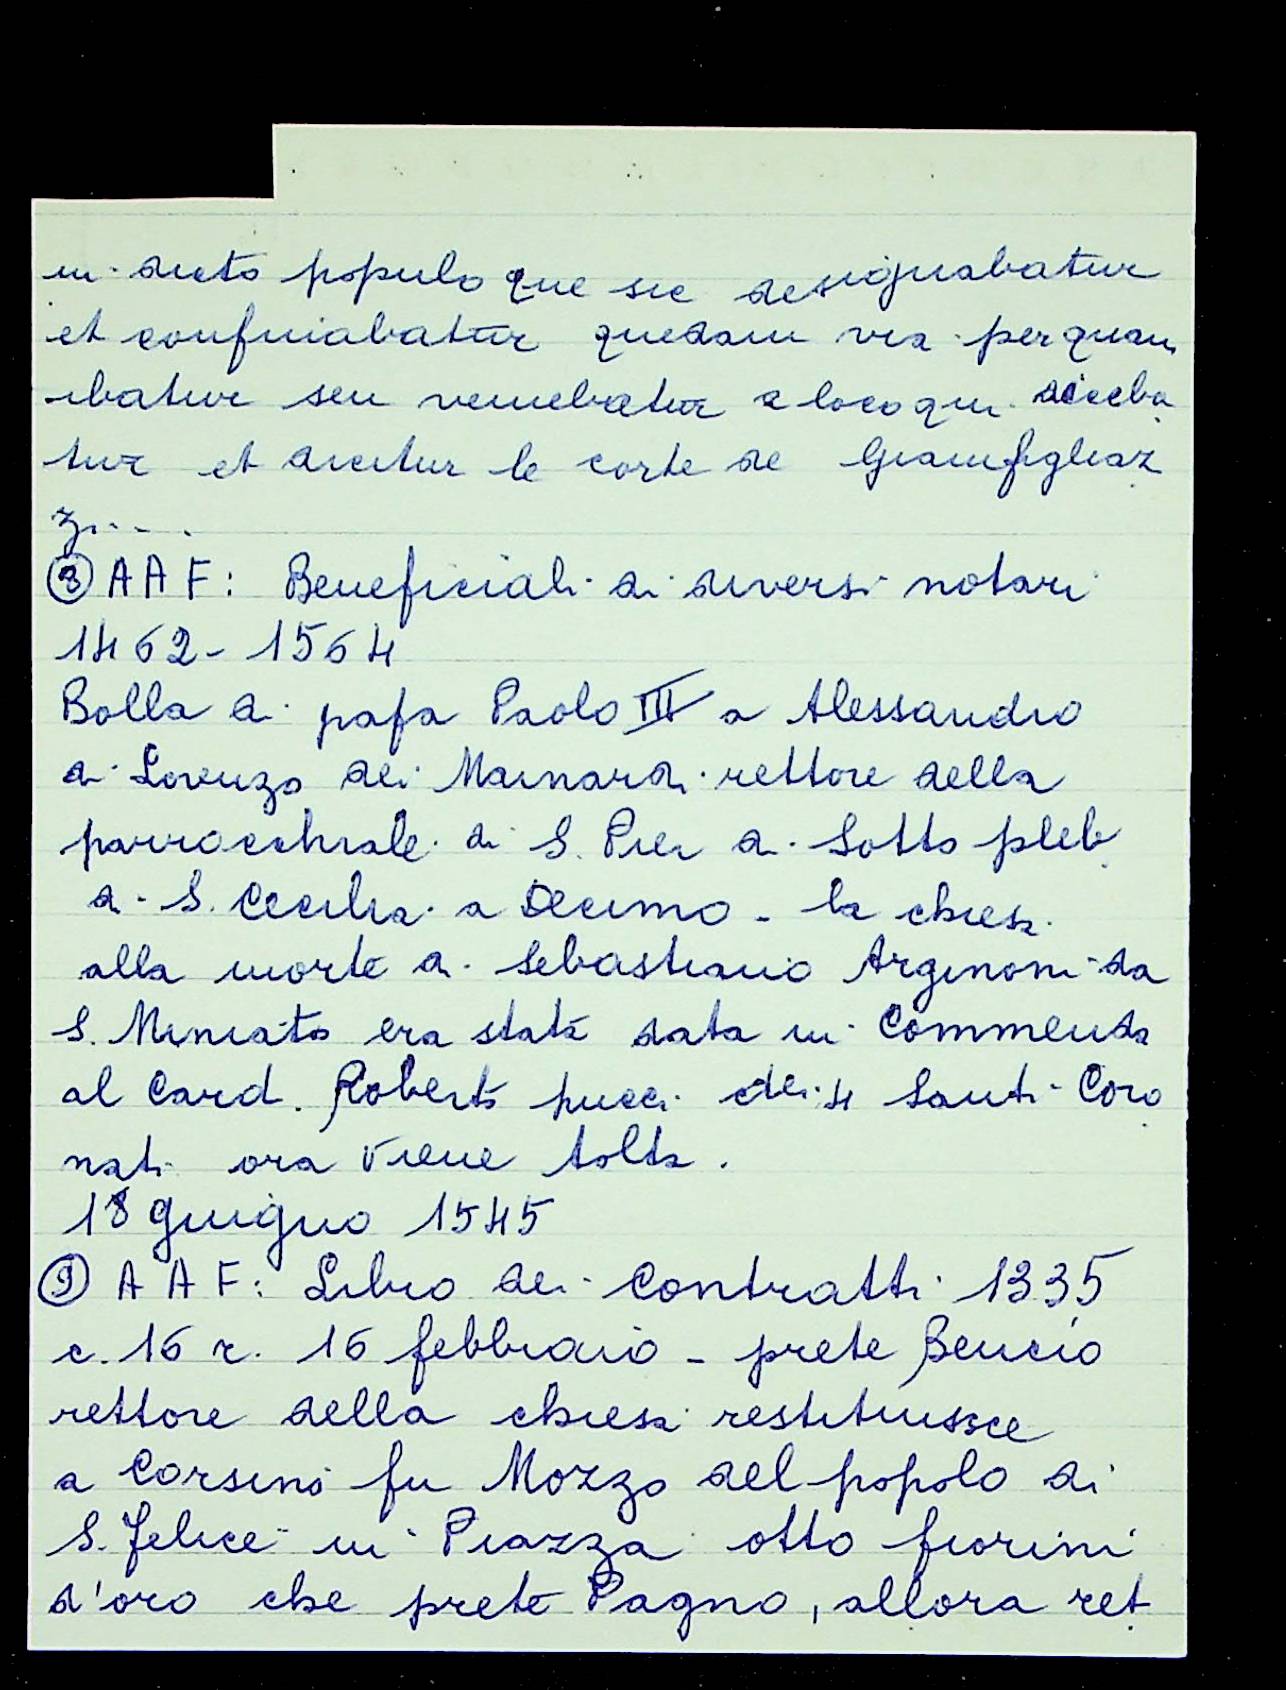 in dicto populo que sic designabatur
et confiniabatur quedam via per quam
ibatur seu veniebatur a loco qui diceba
tur et dicitur le corte de Gianfigliaz
zi....
⑧ AAF: Beneficiali di diversi notari
1462-1564
Bolla di papa Paolo III a Alessandro
di Lorenzo dei Mainardi rettore della
parrocchiale di S. Pier di Sotto pleb
di S. Cecilia a Decimo - la chiesa
alla morte di Sebastiano Arginoni da
S. Miniato era stata data in Commenda
al Card. Roberto pucci dei 4 Santi Coro
nati ora viene tolta.
18 giugno 1545
⑨ AAF: Libro dei Contratti 1335
c. 16 r. 16 febbraio - prete Bencio
rettore della chiesa restituissce
a Corsino fu Mozzo del popolo di
S. Felice in Piazza otto fiorini
d'oro che prete Pagno, allora ret